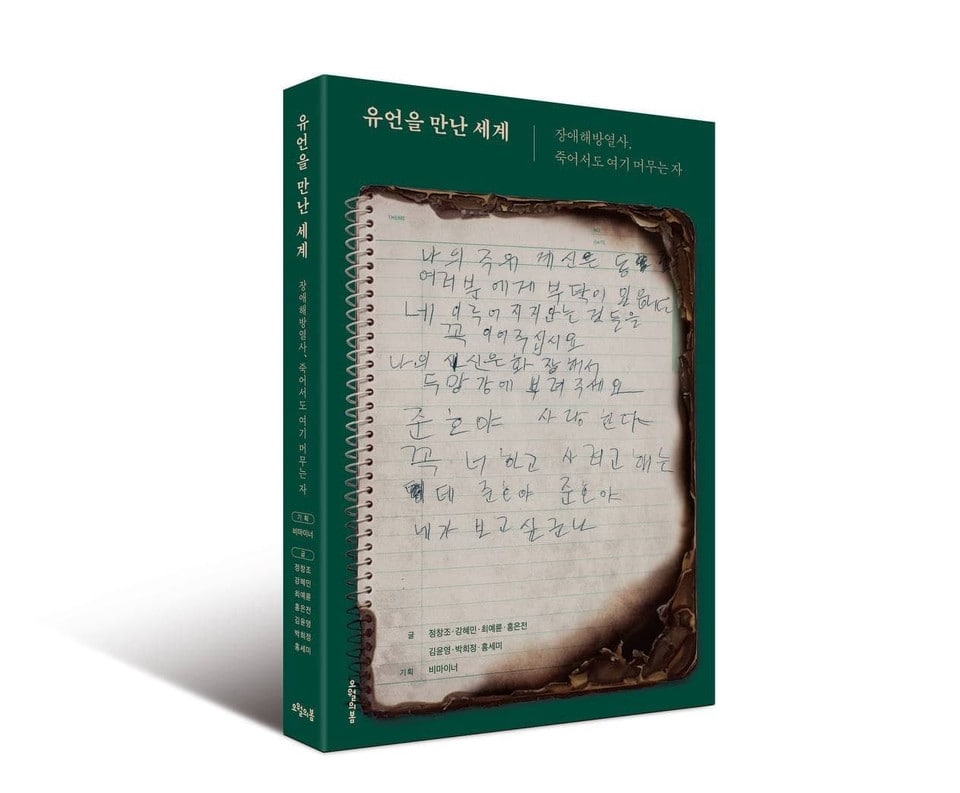 유언을 만난 세계
장애해방열사, 죽어서도 여기 머무는 자
기획
비마이너
글
정창조
강혜민
최예륜
홍은전
김윤영
박희정
홍세미
오월의봄
유언을 만난 세계
장애해방열사,
죽어서도 여기 머무는 자
THEME
NO
DATE
나의 주위 계신은
여러분에게 부탁이 있읍니다
네 이루어지지안는 것들을
꼭 이어주십시요
나의 시신은화 잘해서
두만강에 뿌려주세요
준호야 사랑한다
꼭 너하고 사려고 해는
데 준호야 준호야
내가 보고싶구나
글 정창조·강혜민·최예륜·홍은전
김윤영·박희정·홍세미
기획 비마이너
오월의봄